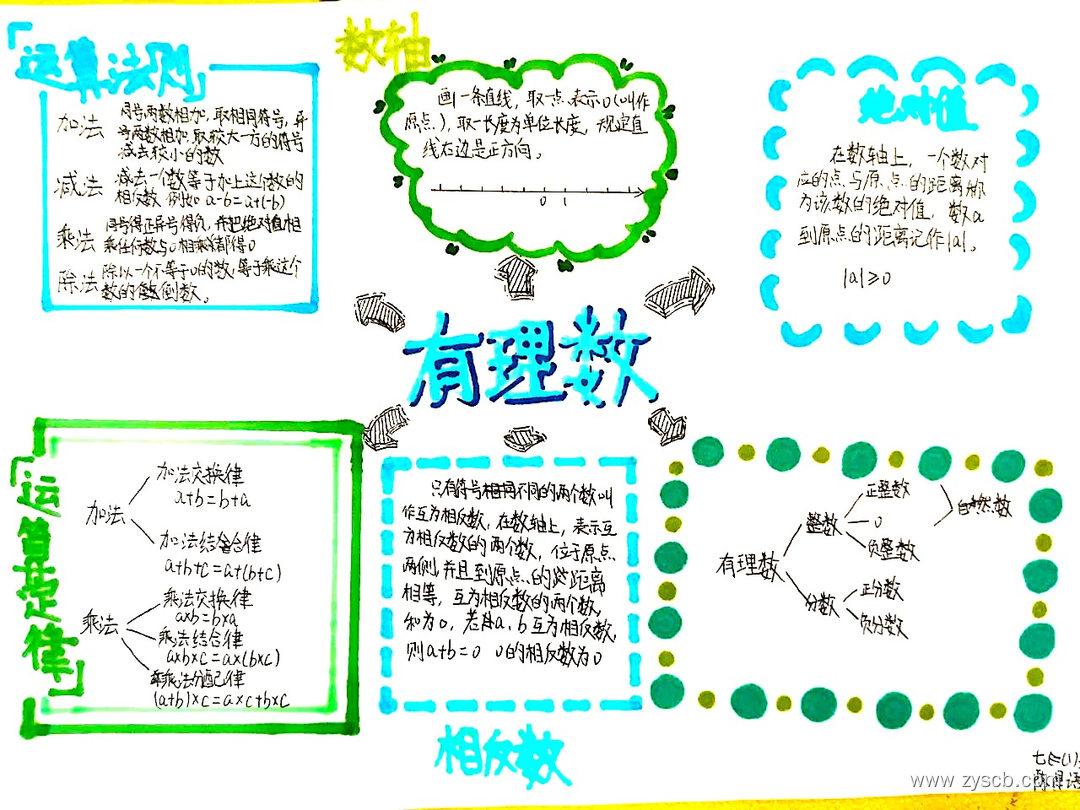 「运算法则」
加法 同号两数相加,取相同符号,异
号两数相加,取较大一方的符号
减去较小的数
减法 减去一个数等于加上这个数的
相反数 例如 a-b=a+(-b)
乘法 同号得正异号得负,并把绝对值相
乘任何数与0相乘都得0
除法 除以一个不等于0的数,等于乘这个
数的倒数。
数轴
画一条直线,取一点表示0(叫作
原点),取一长度为单位长度,规定直
线右边是正方向。
0 1
绝对值
在数轴上,一个数对
应的点与原点的距离即
为该数的绝对值,数a
到原点的距离记作|a|。
|a|≥0
有理数
「运算定律」
加法
加法交换律
a+b=b+a
加法结合律
a+b+c=a+(b+c)
乘法
乘法交换律
a×b=b×a
乘法结合律
a×b×c=a×(b×c)
乘法分配律
(a+b)×c=a×c+b×c
只有符号不同的两个数叫
作互为相反数,在数轴上,表示互
为相反数的两个数,位于原点
两侧,并且到原点的距离
相等,互为相反数的两个数,
和为0,若a、b互为相反数,
则a+b=0 0的相反数为0
相反数
有理数
整数
正整数
0
负整数
自然数
分数
正分数
负分数
www.zyscb.com